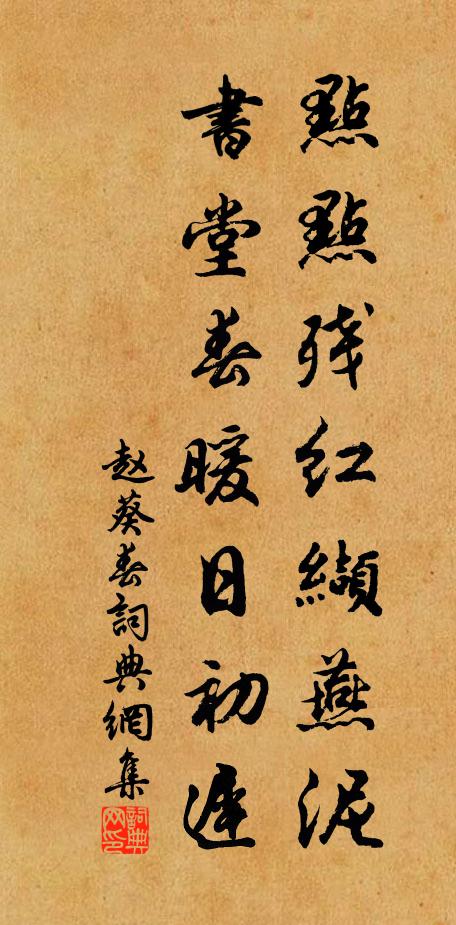 點點残红纈燕泥
書堂春暖日初遲
赵葵春詞典網集
詞典网印